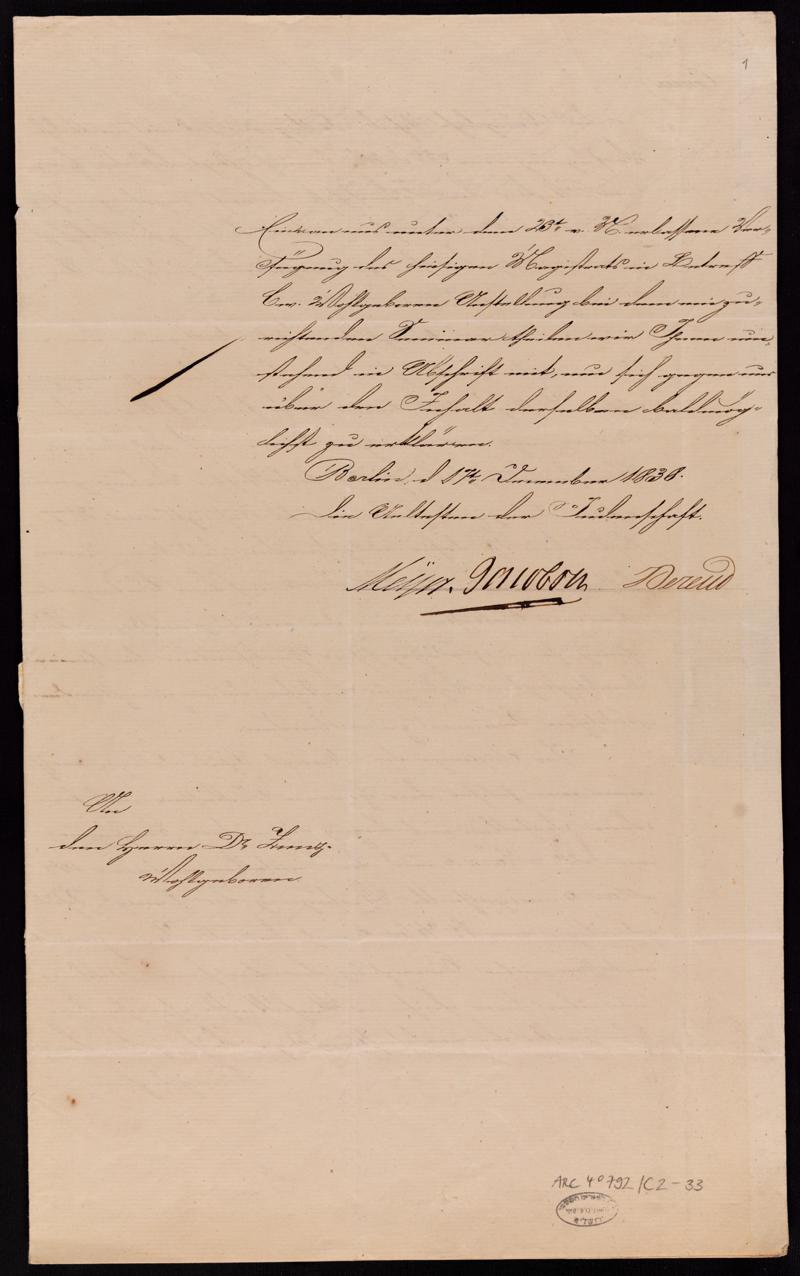 1
Eine an uns unter dem 23t v. M. erlassene Ver-
fügung des hiesigen Magistrats in Betreff
Ew. Wohlgeboren Anstellung bei dem einzu-
richtenden Seminar theilen wir Ihnen um-
stehend in Abschrift mit, um sich gegen uns
über den Inhalt derselben baldmög-
lichst zu erklären.
Berlin, d 17t December 1838.
Die Aeltesten der Judenschaft.
Meyer. Jacobson Berend
An
den Herrn Dr Zunz.
Wohlgeboren
ARC 4° 792/C2-33